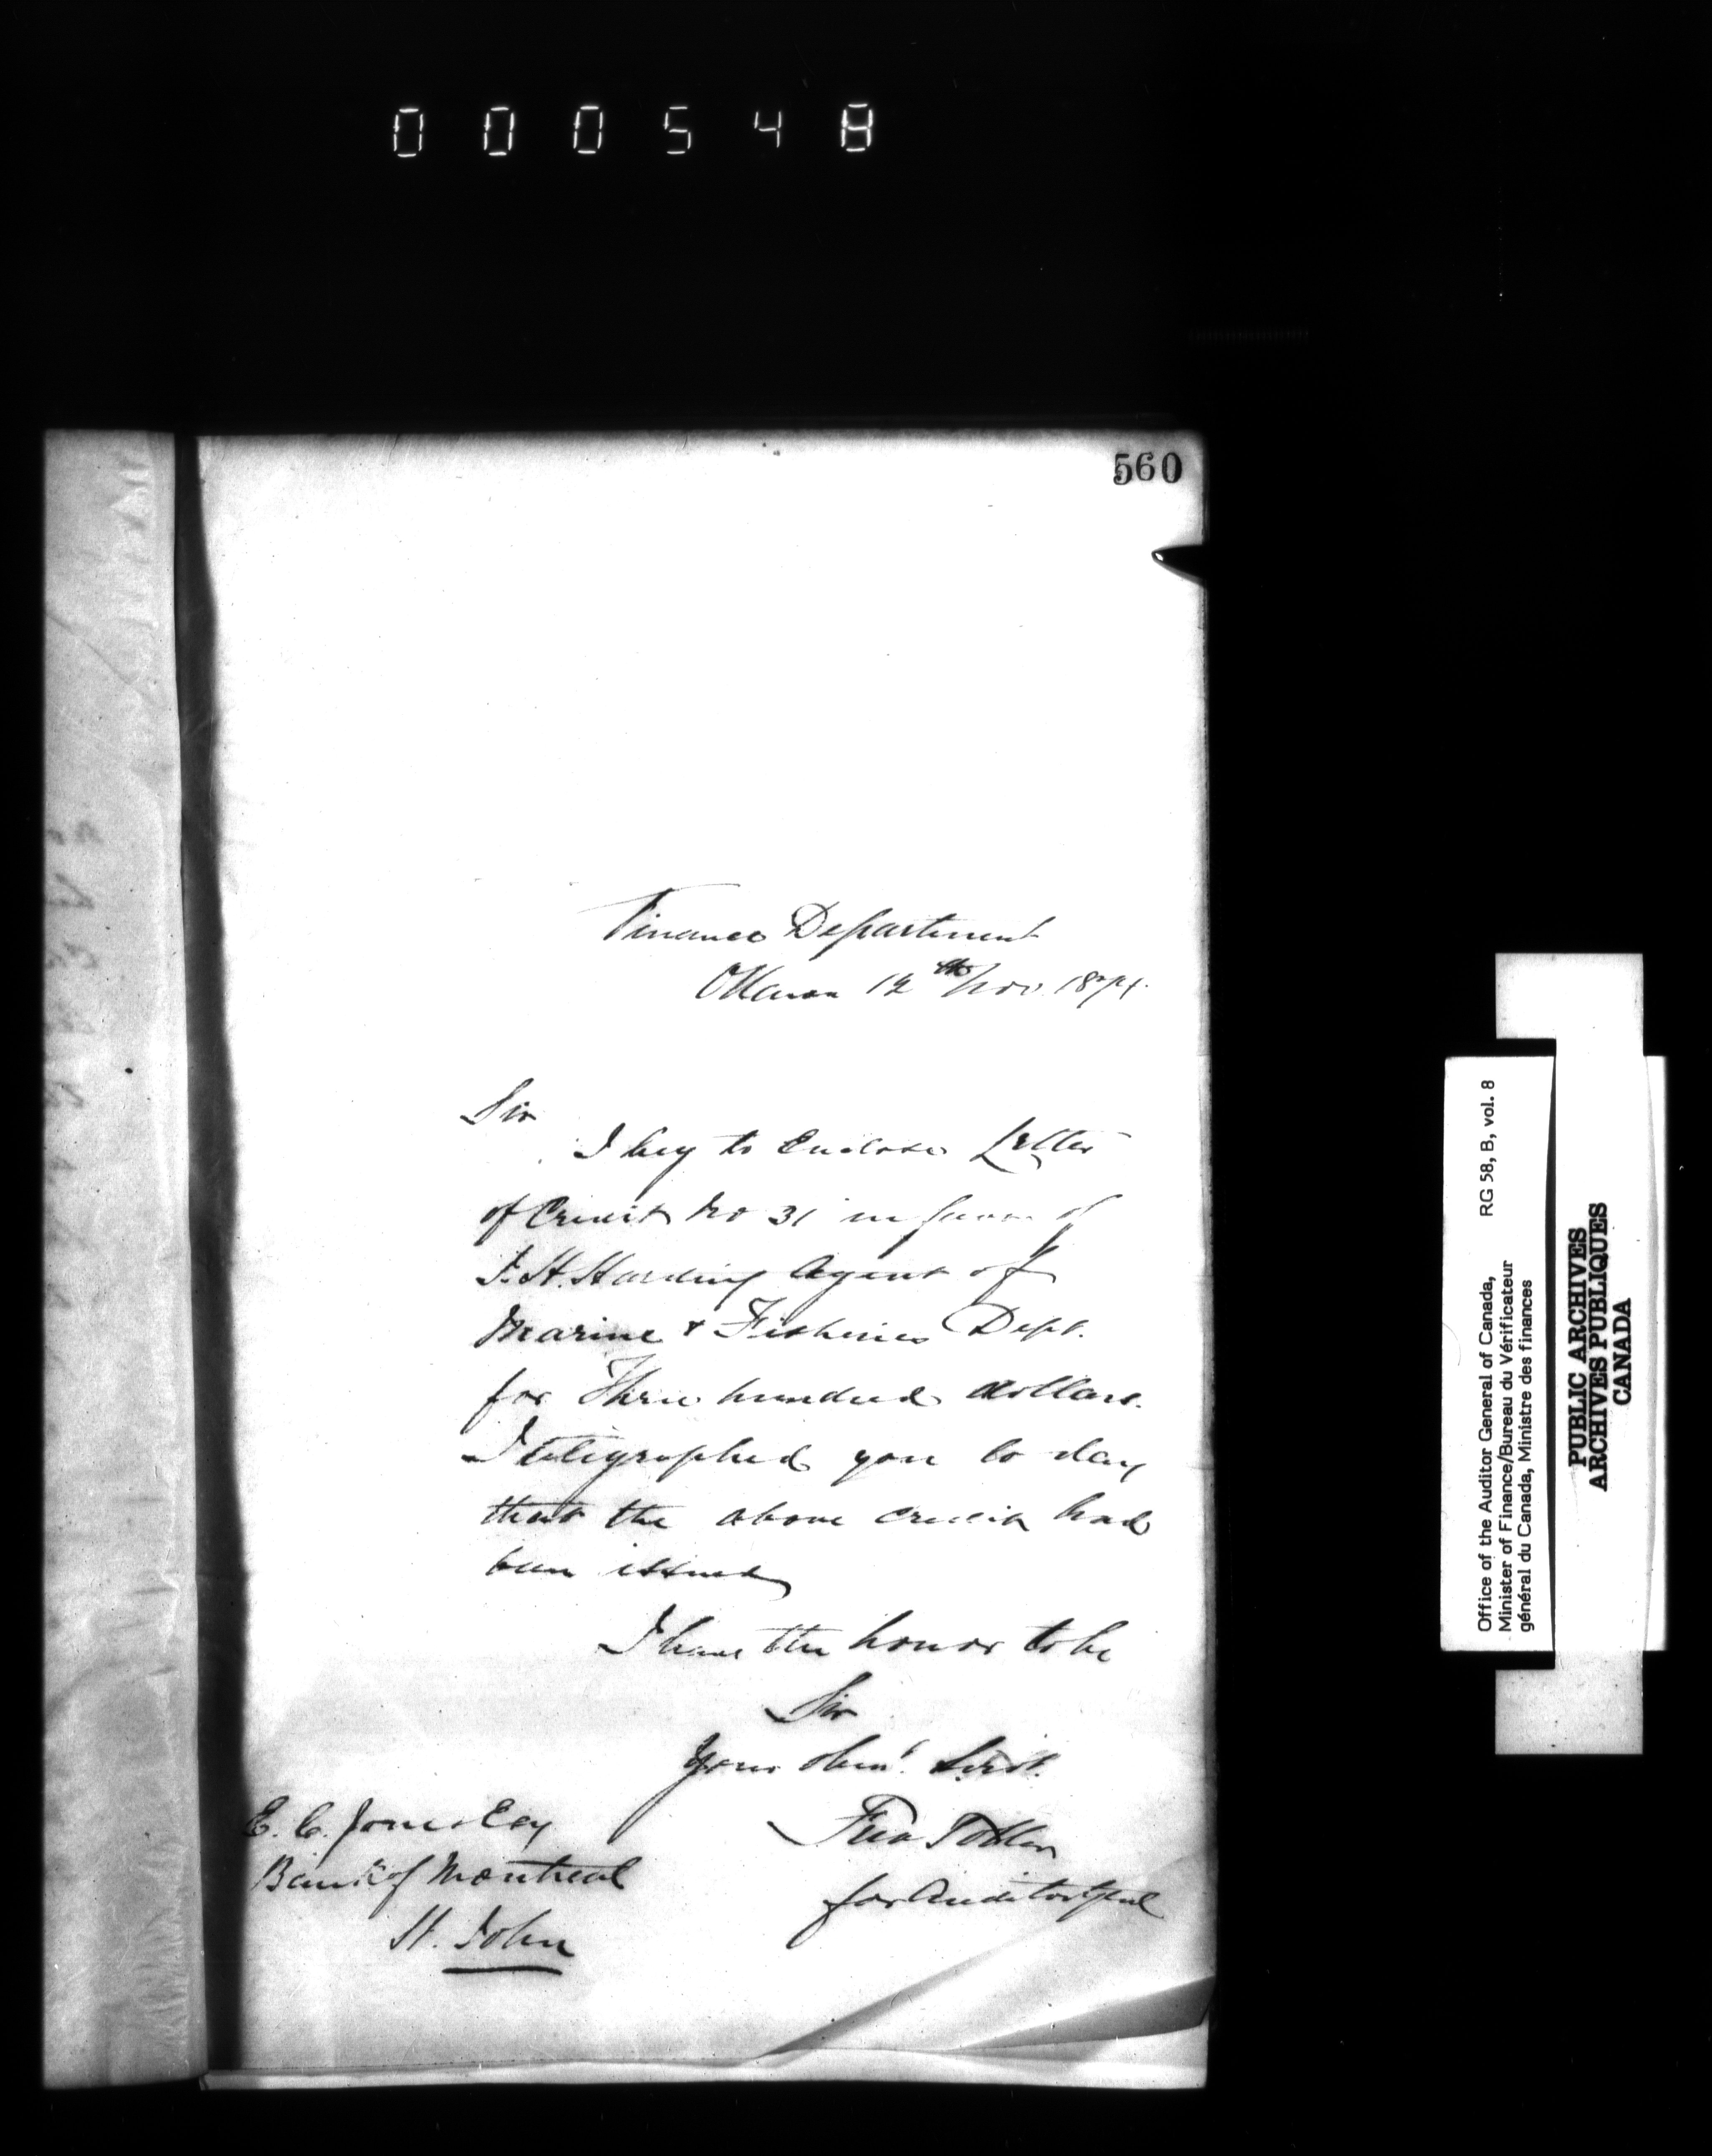 000548
560
Finance Department
Ottawa 12th Nov. 1874.
Sir
I beg to Enclose Letter
of Credit No 31 in favor of
J. H. Harding Agent of
Marine & Fisheries Dept.
for Three hundred dollars.
I telegraphed you to day
that the above credit had
been issued
I have the honor to be
Sir
Your Obt. Servt.
for Auditor Genl
E. C. Jones Esq
Bank of Montreal
St. John
Office of the Auditor General of Canada, RG 58, B, vol. 8
Minister of Finance/Bureau du Vérificateur
général du Canada, Ministre des finances
PUBLIC ARCHIVES
ARCHIVES PUBLIQUES
CANADA